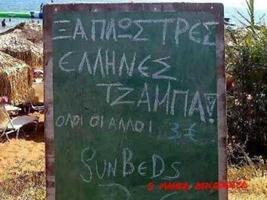 ΞΑΠΛΩΣΤΡΕΣ
ΕΛΛΗΝΕΣ
ΤΖΑΜΠΑ!
ΟΛΟΙ ΟΙ ΑΛΛΟΙ 3€
SUNBEDS